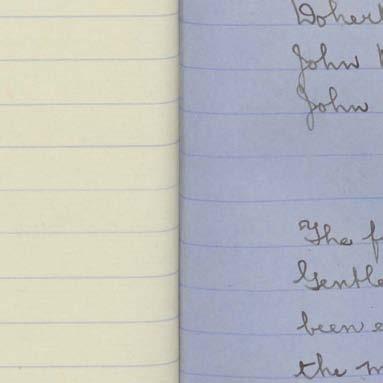 Dohert
John
John
The f
Gentle
been e
the m